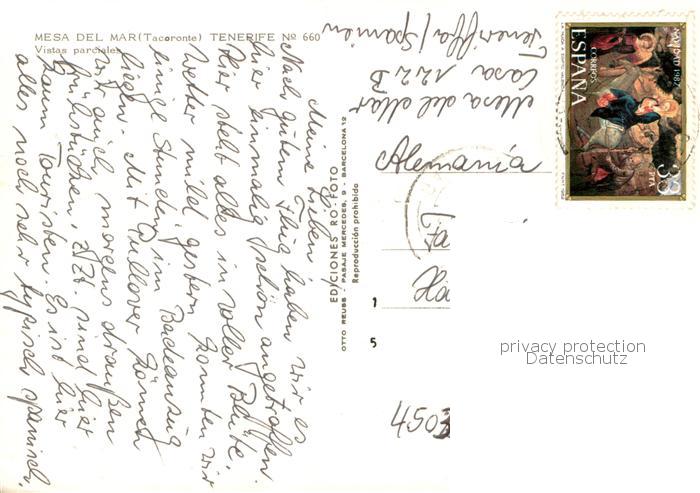 MESA DEL MAR (Tacoronte) TENERIFE Nº 660
Vistas parciales
Meine Lieben,
Nach gutem Flug haben wir es
hier einmalig schön angetroffen.
Hier steht alles in voller Blüte.
Wetter mild gestern konnten wir
einige Stunden im Badeanzug
liegen. Mit Pullover können
wir auch morgens draußen
frühstücken. zZt. sind hier
kaum Touristen. Es ist hier
alles noch sehr typisch spanisch.
EDICIONES RO-FOTO
OTTO REUSS - PASAJE MERCEDES, 9 - BARCELONA 12
Reproducción prohibida
Mesa del Mar
Casa 122 D
Teneriffa / Spanien
Alemania
Ha
1
5
4503
NAVIDAD 1982
CORREOS
ESPAÑA
33
PTA
privacy protection
Datenschutz